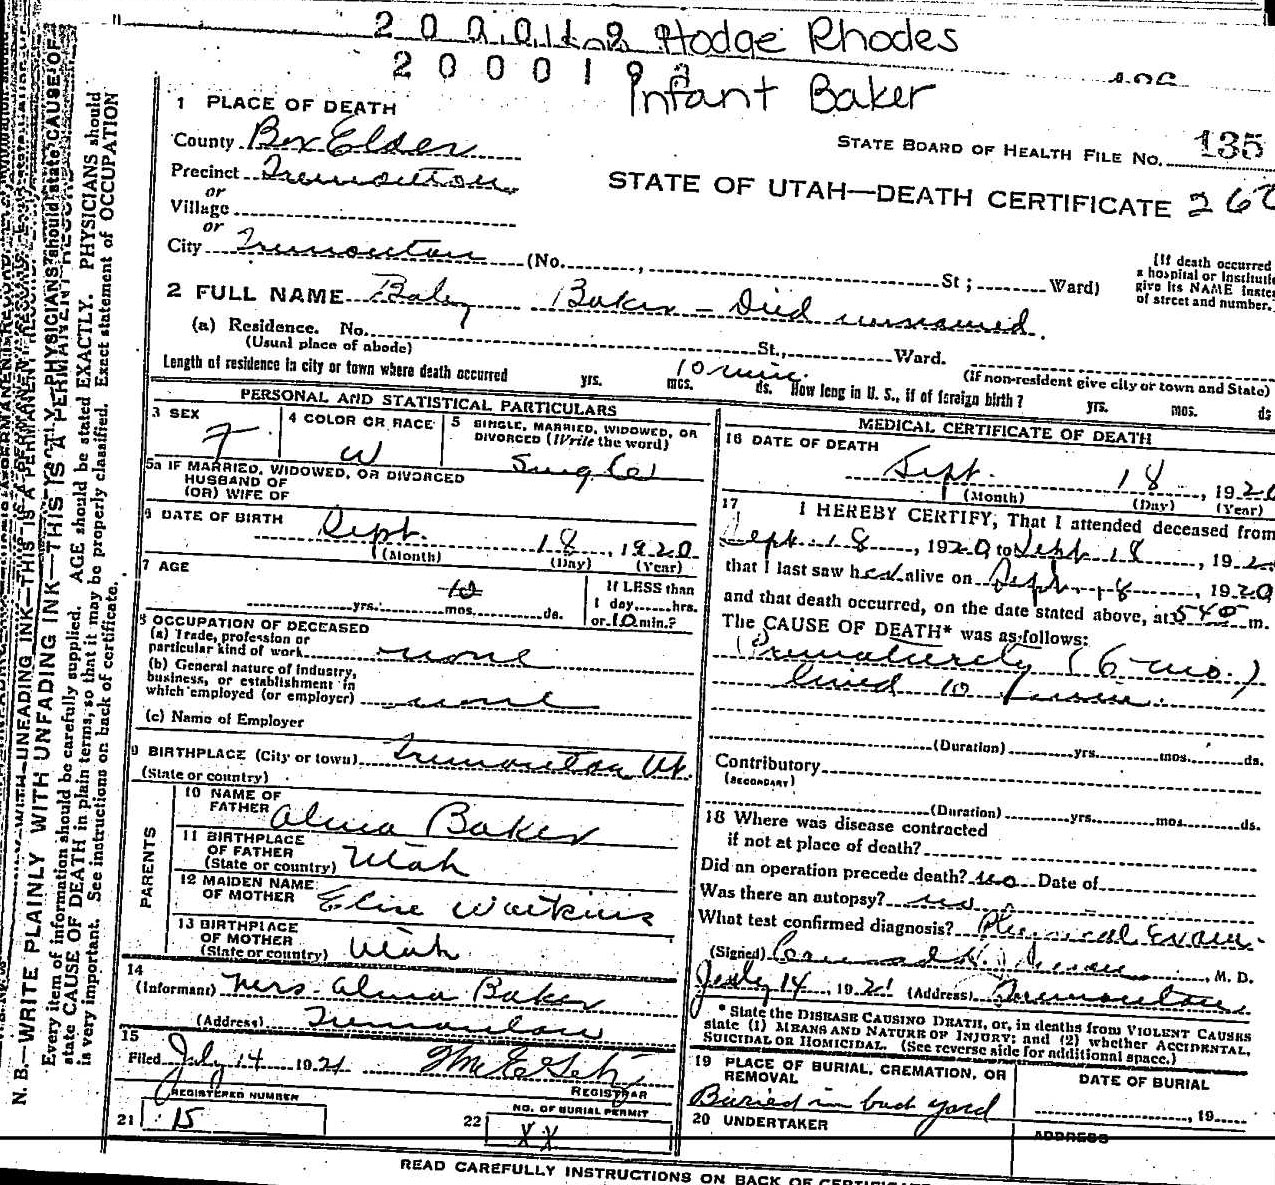 200019 Hodge Rhodes
2000192
Infant Baker
1 PLACE OF DEATH
County Box Elder
STATE BOARD OF HEALTH FILE NO. 135
Precinct Tremonton
or
STATE OF UTAH—DEATH CERTIFICATE 260
Village
or
City Tremonton (No. , St ; Ward)
(If death occurred
a hospital or Institutio
give its NAME inste
of street and number.
2 FULL NAME Baby Baker - Died unnamed.
(a) Residence. No. St., Ward.
(Usual place of abode)
(If non-resident give city or town and State)
Length of residence in city or town where death occurred yrs. mos. 10 min. ds. How long in U. S., if of foreign birth? yrs. mos. ds
PERSONAL AND STATISTICAL PARTICULARS
3 SEX
F
4 COLOR OR RACE
W
5 SINGLE, MARRIED, WIDOWED, OR
DIVORCED (Write the word)
Single
5a IF MARRIED, WIDOWED, OR DIVORCED
HUSBAND OF
(OR) WIFE OF
6 DATE OF BIRTH Sept. 18, 1920
(Month) (Day) (Year)
7 AGE
yrs. 10 mos. ds.
If LESS than
1 day hrs.
or 10 min.?
8 OCCUPATION OF DECEASED
(a) Trade, profession or
particular kind of work none
(b) General nature of industry,
business, or establishment in
which employed (or employer) none
(c) Name of Employer
9 BIRTHPLACE (City or town) Tremonton Ut.
(State or country)
PARENTS
10 NAME OF
FATHER Alma Baker
11 BIRTHPLACE
OF FATHER
(State or country) Utah
12 MAIDEN NAME
OF MOTHER Elise Watkins
13 BIRTHPLACE
OF MOTHER
(State or country) Utah
14
(Informant) Mrs. Alma Baker
(Address) Tremonton
15
Filed July 14 1921
REGISTRAR
REGISTERED NUMBER
21 15
NO. OF BURIAL PERMIT
22 XX
MEDICAL CERTIFICATE OF DEATH
16 DATE OF DEATH
Sept. 18, 1920
(Month) (Day) (Year)
17 I HEREBY CERTIFY, That I attended deceased from
Sept. 18, 1920 to Sept 18, 192
that I last saw her alive on Sept. 18, 1920
and that death occurred, on the date stated above, at 5 40 m.
The CAUSE OF DEATH* was as follows:
Prematurety (6 mo.)
lived 10
(Duration) yrs. mos. ds.
Contributory
(SECONDARY)
(Duration) yrs. mos. ds.
18 Where was disease contracted
if not at place of death?
Did an operation precede death? no Date of
Was there an autopsy? no
What test confirmed diagnosis? Physical Exam.
(Signed) M. D.
July 14, 1921 (Address) Tremonton
* State the DISEASE CAUSING DEATH, or, in deaths from VIOLENT CAUSES
state (1) MEANS AND NATURE OF INJURY; and (2) whether ACCIDENTAL,
SUICIDAL OR HOMICIDAL. (See reverse side for additional space.)
19 PLACE OF BURIAL, CREMATION, OR
REMOVAL
Buried in back yard
DATE OF BURIAL
, 19
20 UNDERTAKER
ADDRESS
READ CAREFULLY INSTRUCTIONS ON BACK OF CERTIFICATE
N. B.—WRITE PLAINLY WITH UNFADING INK—THIS IS A PERMANENT RECORD
Every item of information should be carefully supplied. AGE should be stated EXACTLY. PHYSICIANS should
state CAUSE OF DEATH in plain terms, so that it may be properly classified. Exact statement of OCCUPATION
is very important. See instructions on back of certificate.